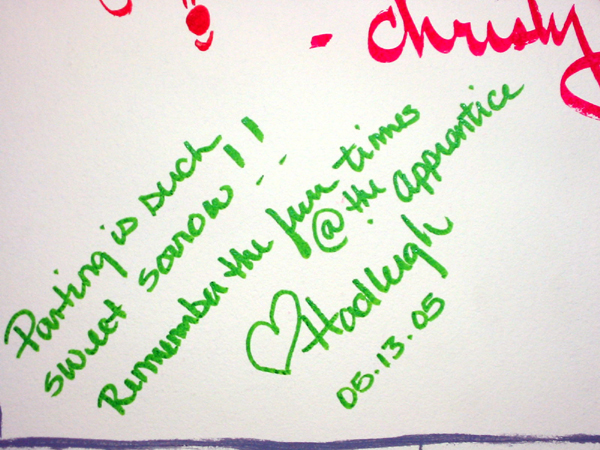 - Christy
Parting is such
sweet sorrow!!
Remember the fun times
@ the apprentice
♡ Hadleigh
05.13.05